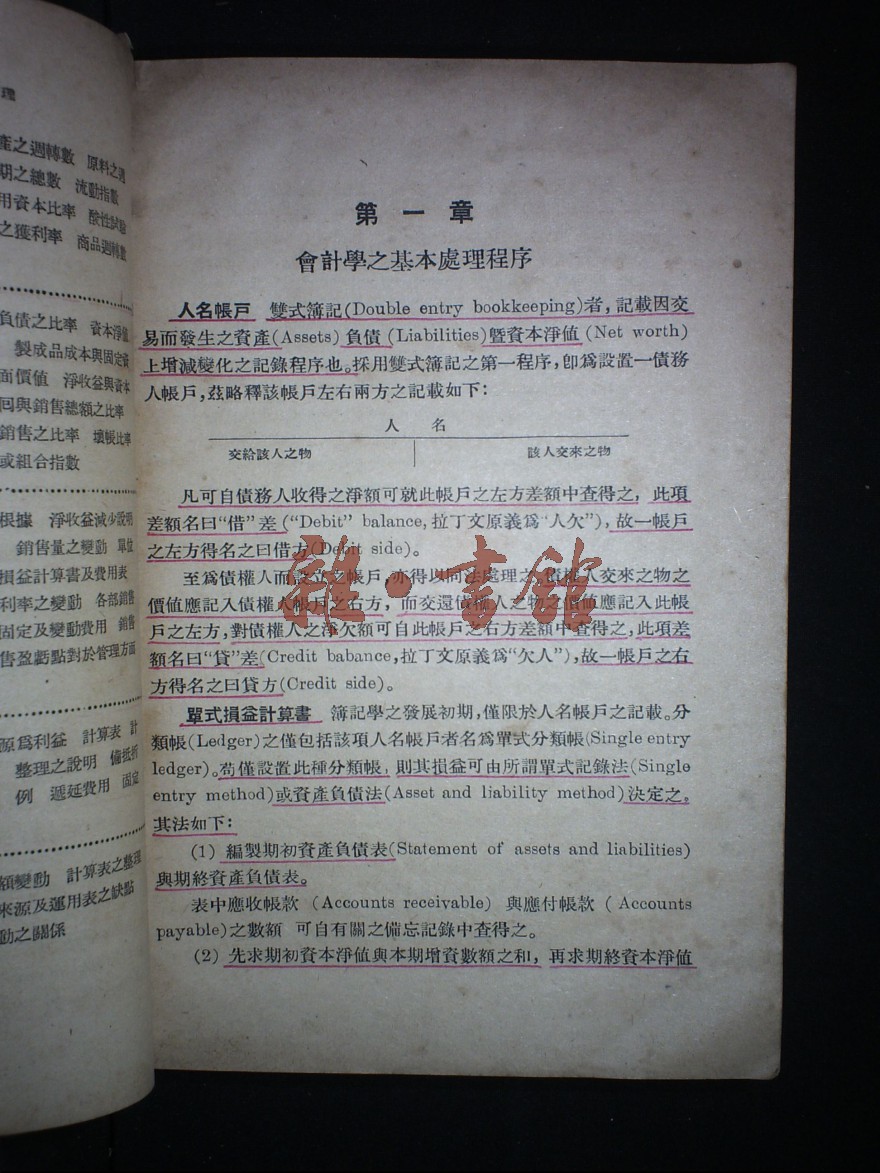 理
產之週轉數 原料之週
期之總數 流動指數
用資本比率 酸性試驗
之獲利率 商品週轉數
負債之比率 資本淨值
製成品成本與固定資
面價值 淨收益與資本
回與銷售總額之比率
銷售之比率 壞帳比率
或組合指數
根據 淨收益減少說明
銷售量之變動 單位
損益計算書及費用表
利率之變動 各部銷售
固定及變動費用 銷售
售盈虧點對於管理方面
源爲利益 計算表 計
整理之說明 備抵折
例 遞延費用 固定
額變動 計算表之整理
來源及運用表之缺點
動之關係
第一章
會計學之基本處理程序
人名帳戶 雙式簿記(Double entry bookkeeping)者,記載因交
易而發生之資產(Assets)負債(Liabilities)曁資本淨値(Net worth)
上增減變化之記錄程序也。採用雙式簿記之第一程序,卽爲設置一債務
人帳戶,茲略釋該帳戶左右兩方之記載如下:
人 名
交給該人之物 該人交來之物
凡可自債務人收得之淨額可就此帳戶之左方差額中查得之,此項
差額名曰“借”差(“Debit” balance,拉丁文原義爲“人欠”),故一帳戶
之左方得名之曰借方(Debit side)。
至爲債權人而設立之帳戶,亦得以同法處理之,債權人交來之物之
價値應記入債權人帳戶之右方,而交還債權人之物之價値應記入此帳
戶之左方,對債權人之淨欠額可自此帳戶之右方差額中查得之,此項差
額名曰“貸”差(Credit babance,拉丁文原義爲“欠人”),故一帳戶之右
方得名之曰貸方(Credit side)。
單式損益計算書 簿記學之發展初期,僅限於人名帳戶之記載。分
類帳(Ledger)之僅包括該項人名帳戶者名爲單式分類帳(Single entry
ledger)。苟僅設置此種分類帳,則其損益可由所謂單式記錄法(Single
entry method)或資產負債法(Asset and liability method)決定之。
其法如下:
(1) 編製期初資產負債表(Statement of assets and liabilities)
與期終資產負債表。
表中應收帳款(Accounts receivable)與應付帳款(Accounts
payable)之數額 可自有關之備忘記錄中查得之。
(2) 先求期初資本淨値與本期增資數額之和,再求期終資本淨値
雜·書館